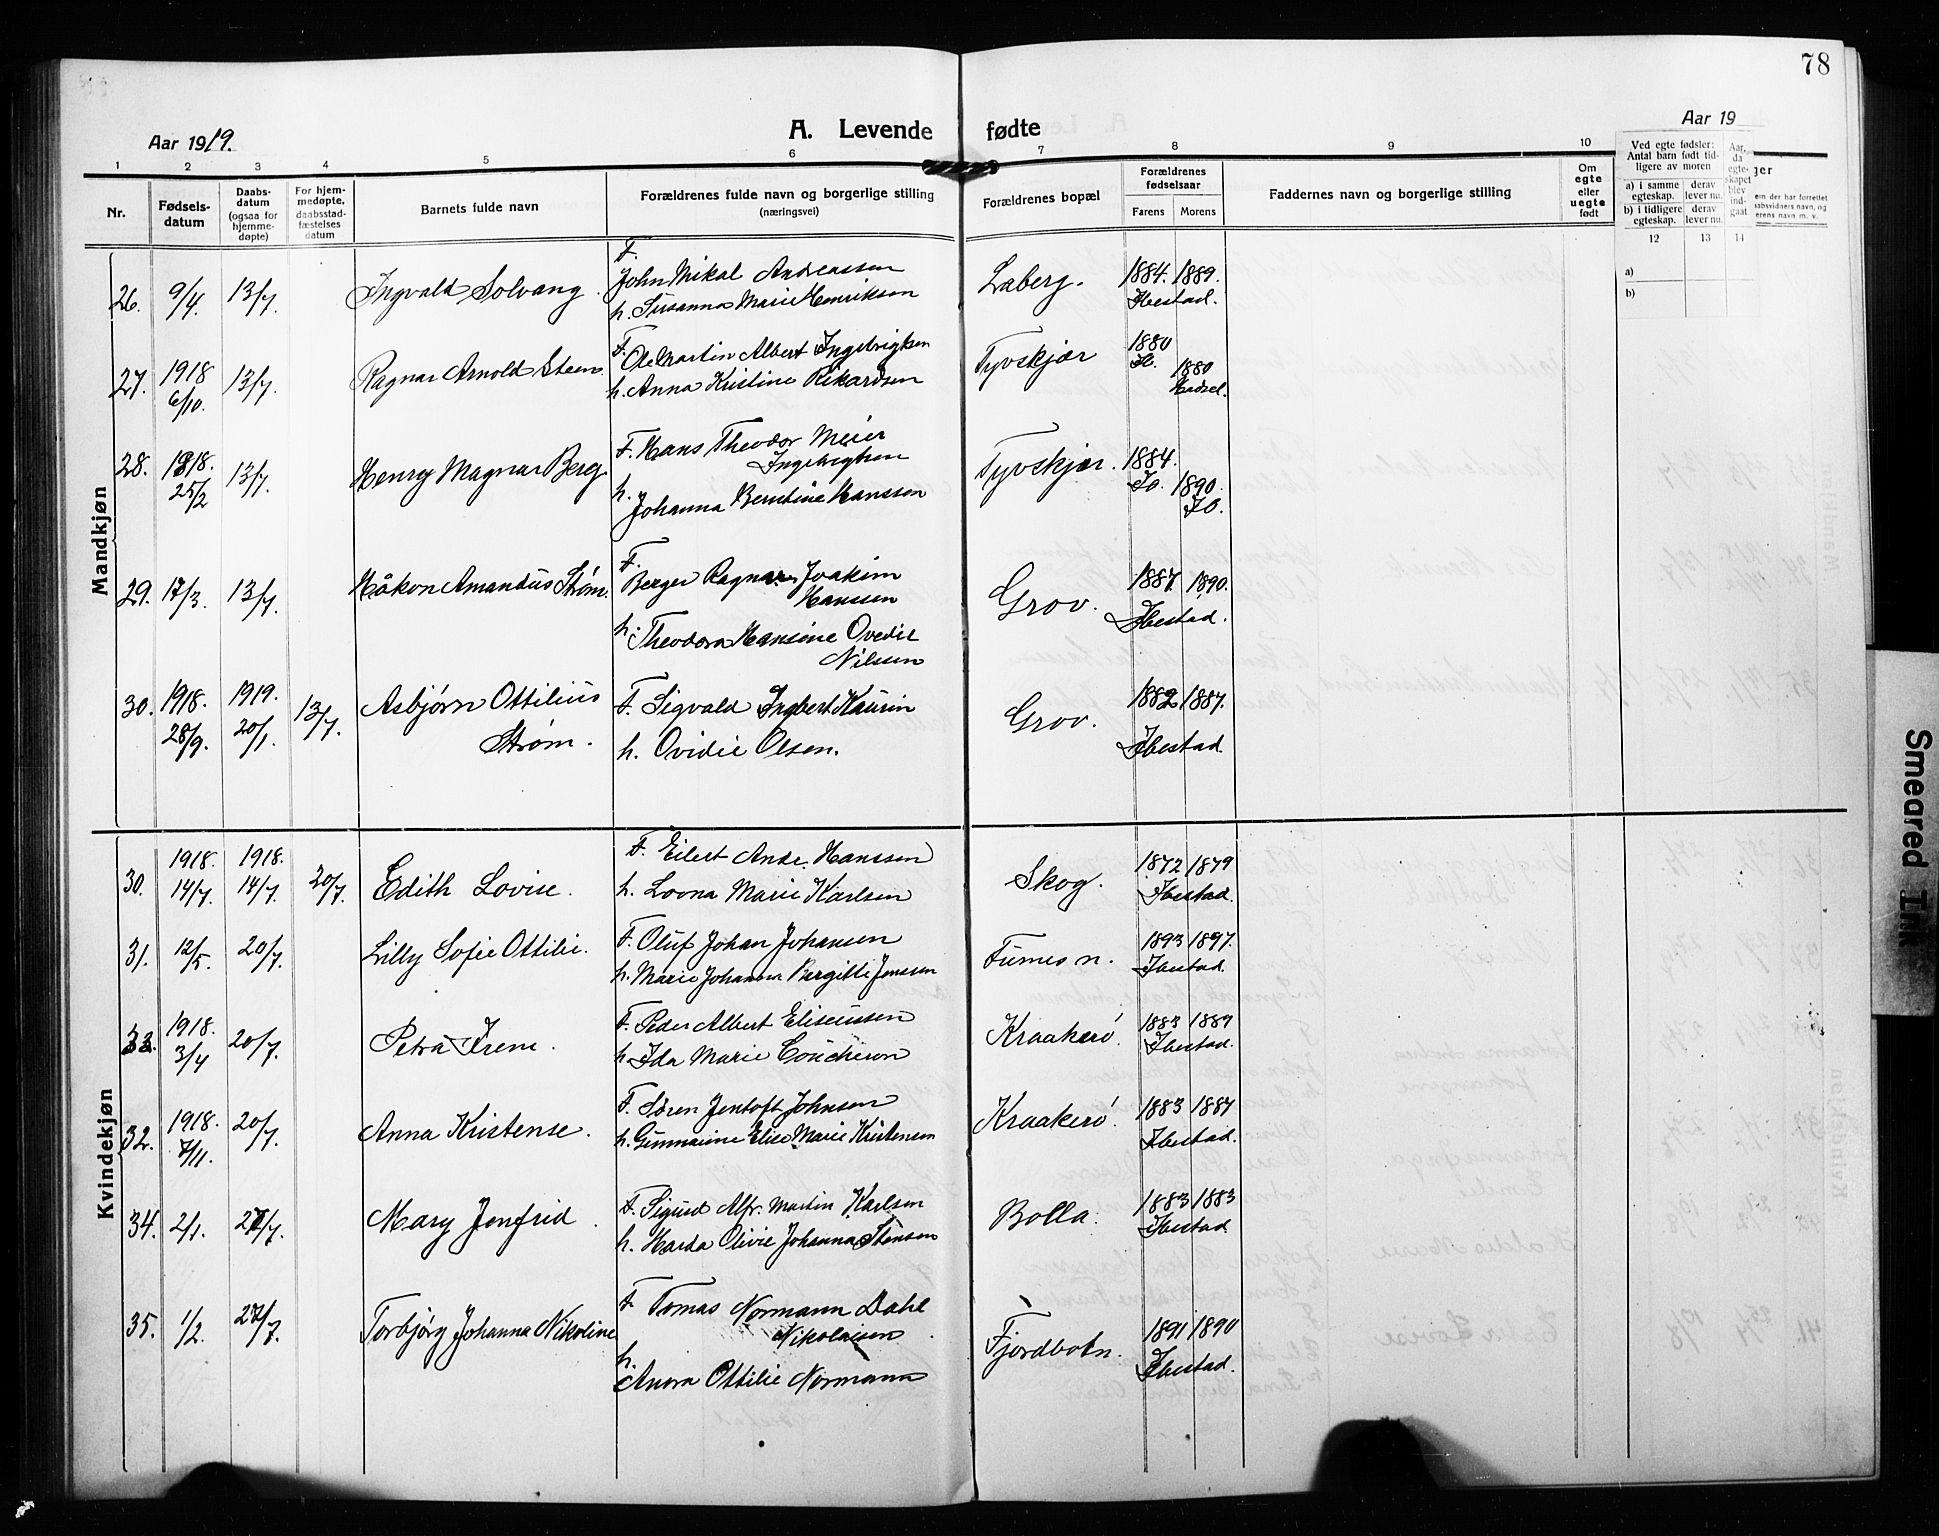 78
Aar 1919.
A. Levende fødte
Aar 19
1 2 3 4 5 6 7 8 9 10
Nr.
Fødsels-
datum
Daabs-
datum
(ogsaa for
hjemme-
døpte)
For hjem-
medøpte,
daabsstad-
fæstelses
datum
Barnets fulde navn
Forældrenes fulde navn og borgerlige stilling
(næringsvei)
Forældrenes bopæl
Forældrenes
fødselsaar
Farens Morens
Faddernes navn og borgerlige stilling
Om
egte
eller
uegte
født
Ved egte fødsler:
Antal barn født tid-
ligere av moren
a) i samme
egteskap.
derav
lever nu.
b) i tidligere
egteskap.
derav
lever nu.
Aar,
da
egte-
skapet
blev
ind-
gaat
12 13 14
a)
b)
Mandkjøn
26. 9/4. 13/7. Ingvald Solvang.
F.
John Mikal Andreassen
h. Susanna Marie Henriksen
Laberg. 1884. 1889.
Ibestad.
27. 1918
6/10. 13/7. Ragnar Arnold Steen
F. Ole Martin Albert Ingebrigtsen
h. Anna Kristine Rikardsen
Tyvskjær 1880
Ib. 1880
Hadsel.
28. 1918.
25/2 13/7. Henry Magnar Berg
F. Hans Theodor Meier
Ingebrigtsen
h.
Johanna Berntine Hanssen
Tyvskjær. 1884.
Ib. 1890.
Ib.
29. 17/3. 13/7. Håkon Amandus Strøm.
F.
Berger Ragnar Joakim
Hanssen
h. Theodora Hansine Ovedie
Nilssen
Grov. 1887. 1890.
Ibestad.
30. 1918.
28/9. 1919.
20/1. 13/7. Asbjørn Ottilius
Strøm.
F. Sigvald Ingbert Kaurin
h. Ovidie Olsen.
Grov. 1882 1887.
Ibestad.
Kvindekjøn
30. 1918.
14/7. 1918.
14/7. 20/7. Edith Lovise.
F. Eilert Andr. Hanssen
h. Lovna Marie Karlsen
Skog. 1872 1879
Ibestad.
31. 12/5. 20/7. Lilly Sofie Ottilie.
F. Oluf Johan Johansen
h. Marie Johanna Bergitte Jenssen
Fumes n. 1893 1897.
Ibestad.
33. 1918.
3/4 20/7. Petra Irene.
F. Peder Albert Eliseussen
h. Ida Marie Coucheron
Kraakerö. 1883 1889
Ibestad.
32. 1918.
7/11. 20/7. Anna Kristense.
F. Søren Jentoft Johnsen
h. Gunnarine Elise Marie Kristensen
Kraakerö. 1883 1887
Ibestad.
34. 2/1. 27/7. Mary Jenfrid.
F. Sigurd Alfr. Martin Karlsen
h. Harda Olivie Johanna Stensen
Bolla. 1883 1883
Ibestad.
35. 1/2. 27/7. Torbjørg Johanna Nikoline
F. Tomas Normann Dahl
Nikolaisen
h.
Anora Ottilie Normann
Fjordbotn. 1891 1890
Ibestad.
Smeared Ink